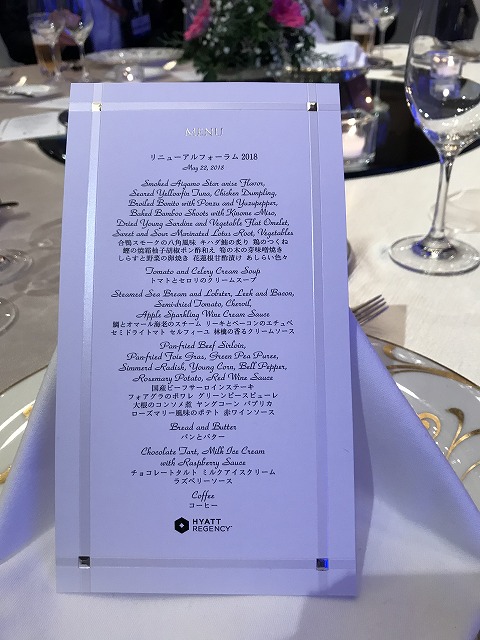 MENU
リニューアルフォーラム 2018
May 22, 2018
Smoked Aigamo Star anise Flavor,
Seared Yellowfin Tuna, Chicken Dumpling,
Broiled Bonito with Ponzu and Yuzupepper,
Baked Bamboo Shoots with Kinome Miso,
Dried Young Sardine and Vegetable Flat Omelet,
Sweet and Sour Marinated Lotus Root, Vegetables
合鴨スモークの八角風味 キハダ鮪の炙り 鶏のつくね
鰹の焼霜柚子胡椒ポン酢和え 筍の木の芽味噌焼き
しらすと野菜の卵焼き 花蓮根甘酢漬け あしらい色々
Tomato and Celery Cream Soup
トマトとセロリのクリームスープ
Steamed Sea Bream and Lobster, Leek and Bacon,
Semi-dried Tomato, Chervil,
Apple Sparkling Wine Cream Sauce
鯛とオマール海老のスチーム リーキとベーコンのエチュベ
セミドライトマト セルフィーユ 林檎の香るクリームソース
Pan-fried Beef Sirloin,
Pan-fried Foie Gras, Green Pea Puree,
Simmerd Radish, Young Corn, Bell Pepper,
Rosemary Potato, Red Wine Sauce
国産ビーフサーロインステーキ
フォアグラのポワレ グリーンピースピューレ
大根のコンソメ煮 ヤングコーン パプリカ
ローズマリー風味のポテト 赤ワインソース
Bread and Butter
パンとバター
Chocolate Tart, Milk Ice Cream
with Raspberry Sauce
チョコレートタルト ミルクアイスクリーム
ラズベリーソース
Coffee
コーヒー
HYATT
REGENCY